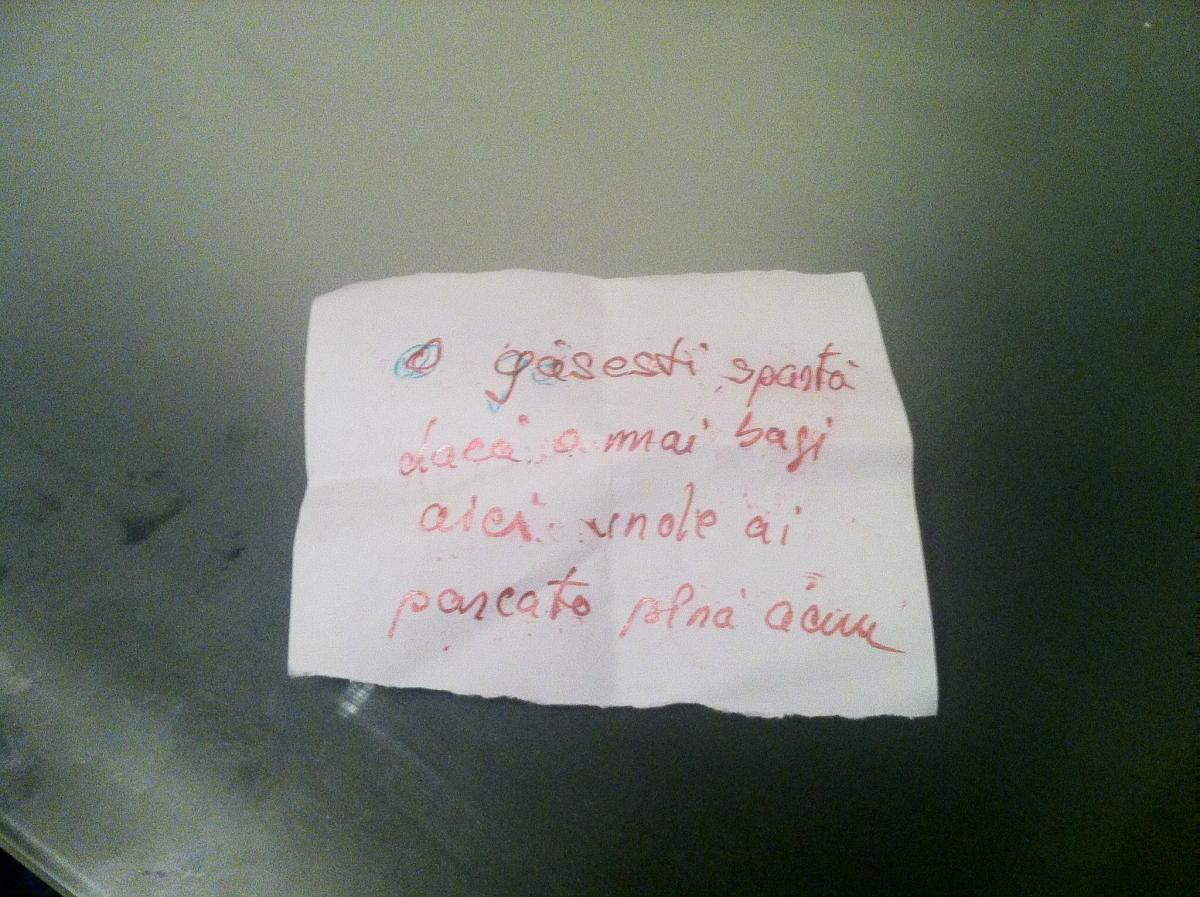 O găsesti spartă
dacă o mai bagi
aici unde ai
parcato până acum